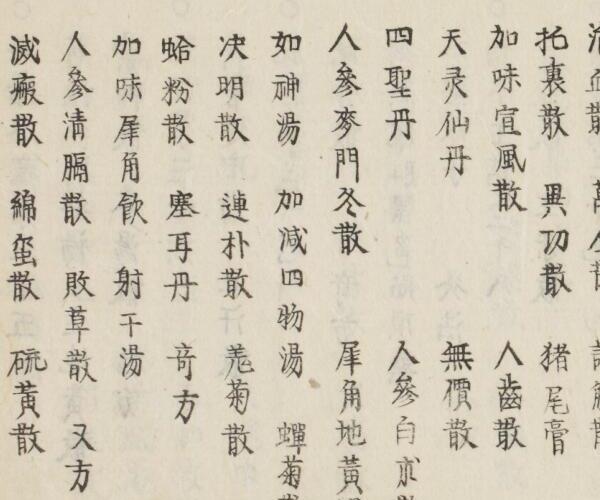 散
托裏散 異功散 猪尾膏
加味宣風散 人齒散
天灵仙丹 無價散
四聖丹 人參白朮
人參麥門冬散 犀角地黃
如神湯 加減四物湯 蟬菊
决明散 連朴散 羗菊散
蛤粉散 塞耳丹 竒方
加味犀角飮 射干湯
人參清膈散 敗草散 又方
滅瘢散 綿蛮散 硫黃散